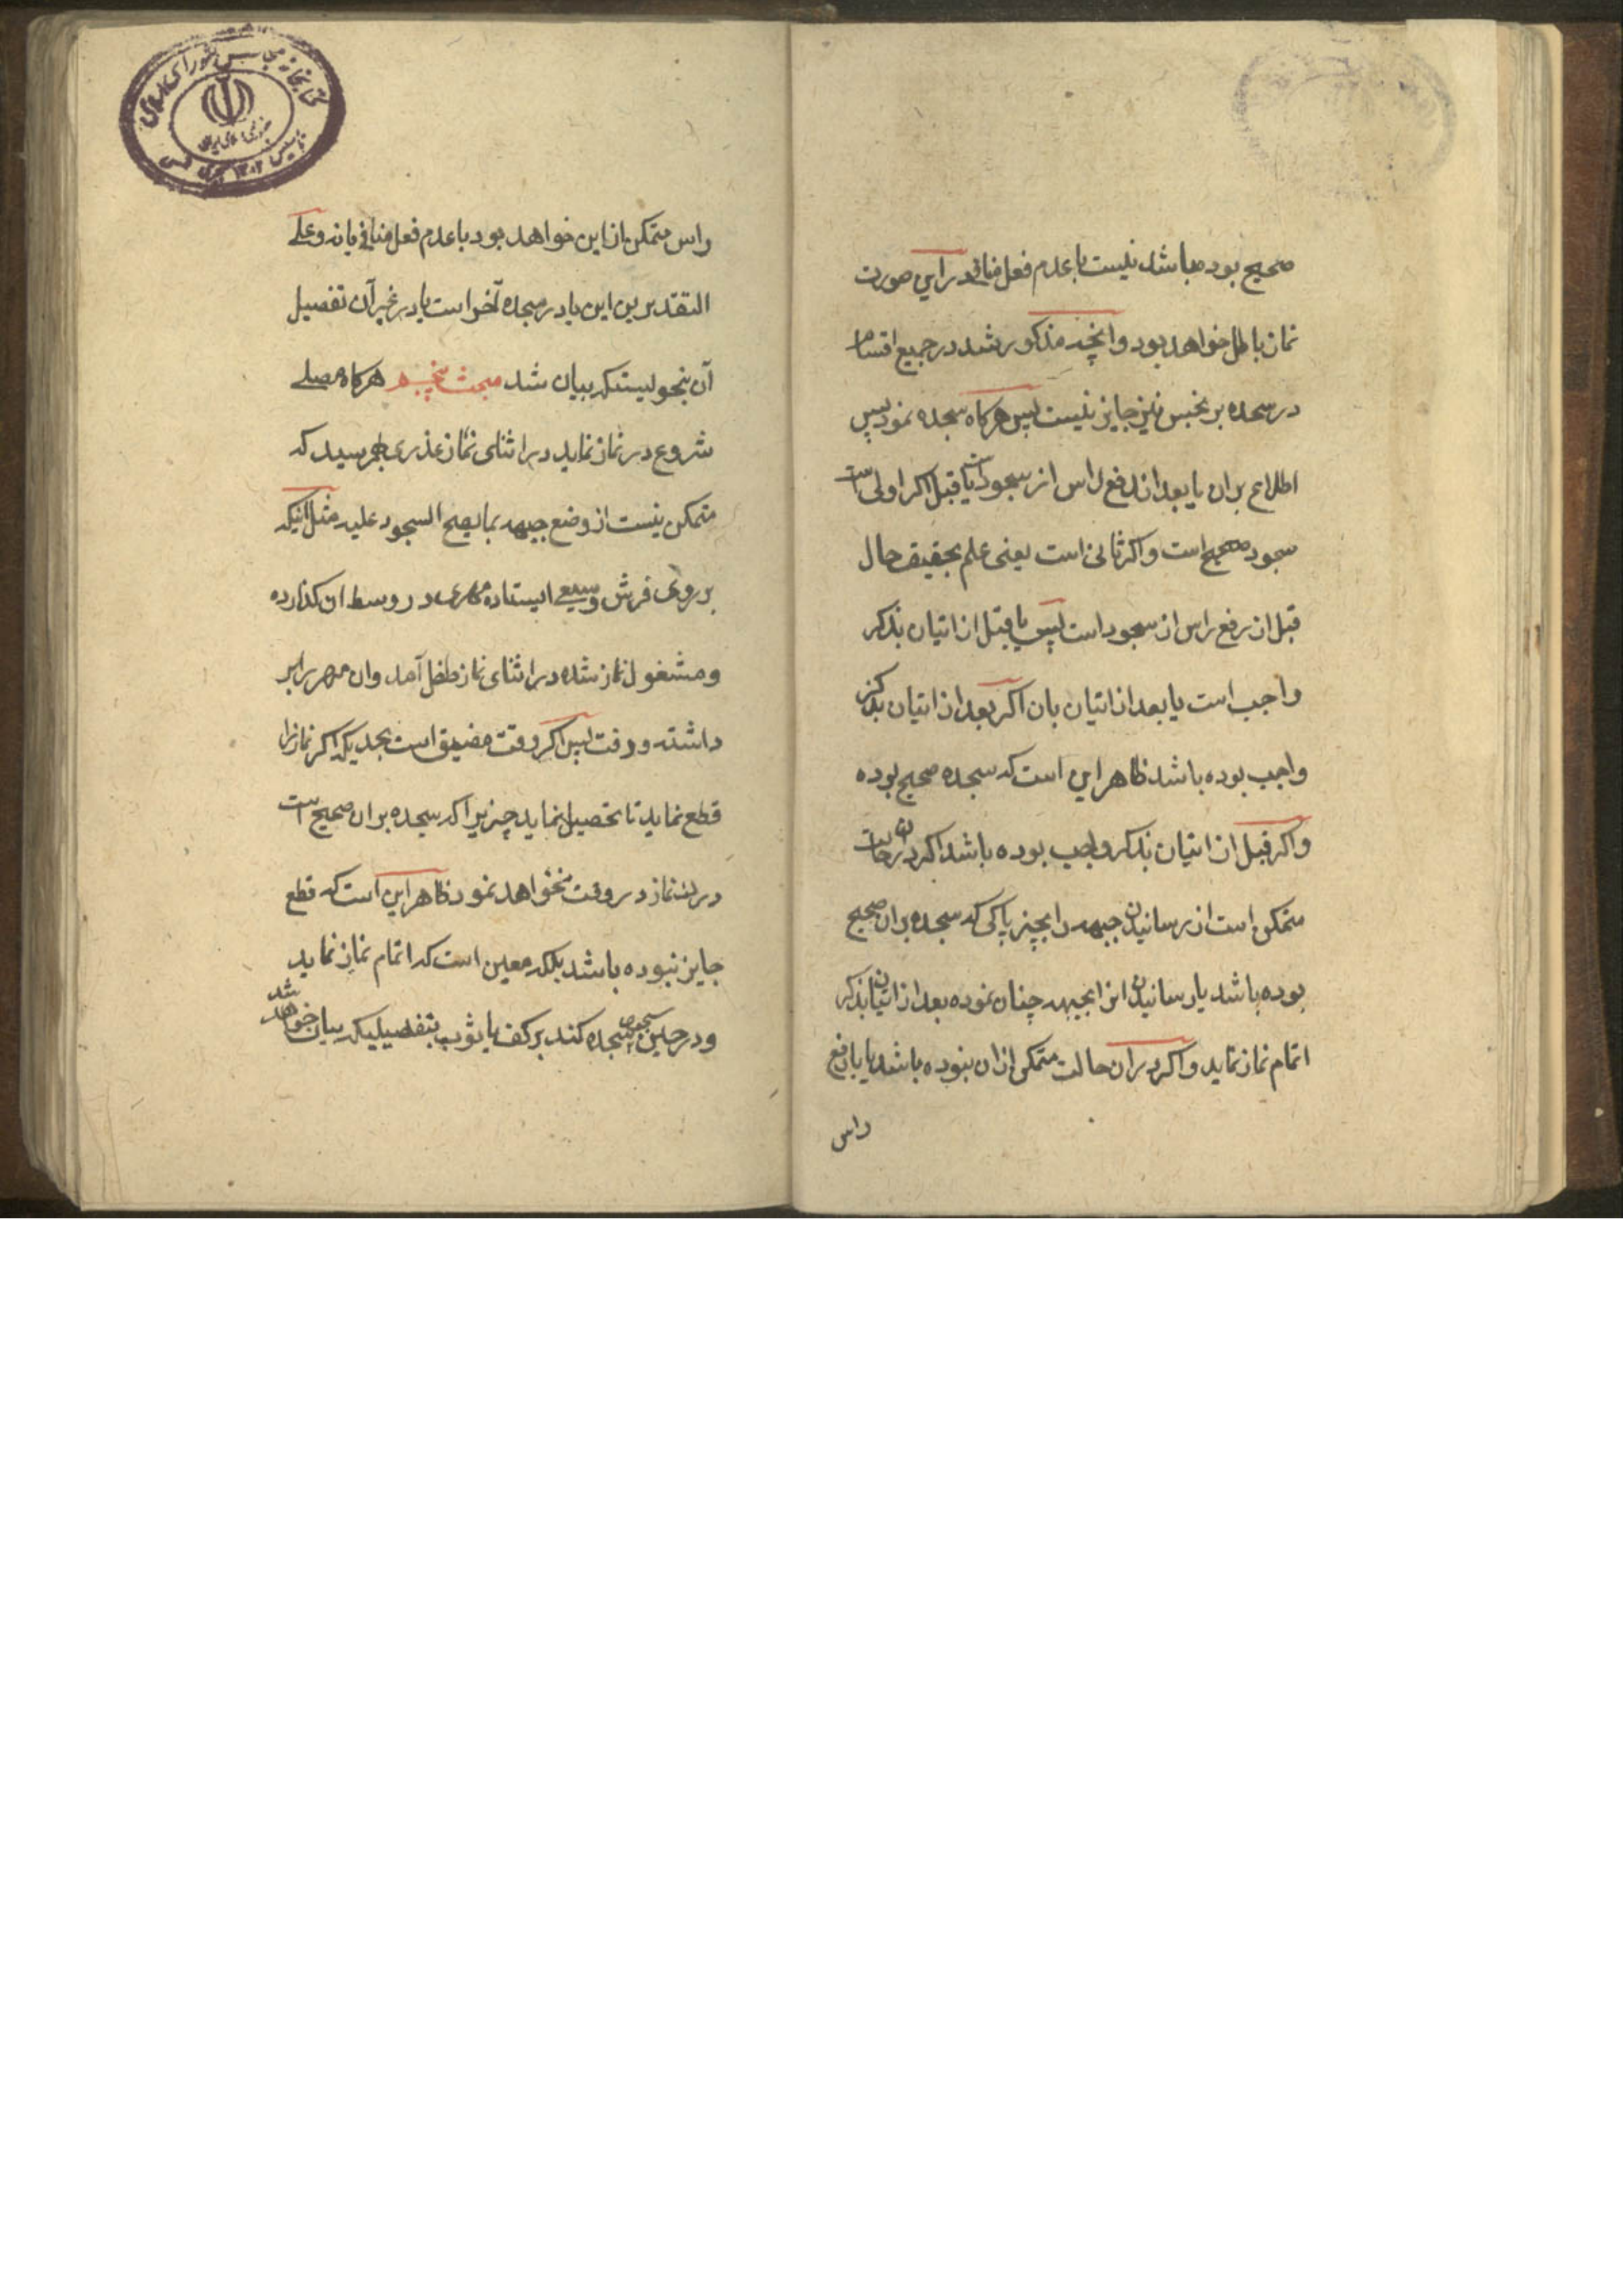 صحیح بوده باشد نیست با عدم فعل منافی در این صورت
نماز باطل خواهد بود و آنچه مذکور شد در جمیع اقسام
در سجده بر نجس نیز جایز نیست پس هرکاه سجده نمود پس
اطلاع بران یا بعد از رفع راس از سجود است یا قبل اکر اولی است
سجود صحیح است و اکر ثانی است یعنی علم بحقیقت حال
قبل از رفع راس از سجود است پس یا قبل از اتیان بذکر
واجب است یا بعد از اتیان بان اکر بعد از اتیان بذکر
واجب بوده باشد ظاهر این است که سجده صحیح بوده
و اکر قبل از اتیان بذکر واجب بوده باشد اکر در ان حالت
متمکن است از رسانیدن جبهه را بچیز پاکی که سجده بران صحیح
بوده باشد یا رسانیدن انرا بجبهه چنان نموده بعد از اتیان بذکر
اتمام نماز نماید و اکر در ان حالت متمکن از ان نبوده باشد یا با رفع
راس
راس متمکن از این خواهد بود با عدم فعل منافی یا نه و علی
التقدیرین این یا در سجده آخر است یا در غیر آن تفصیل
آن بنحویستکه بیان شد مبحث پنجم هرکاه مصلی
شروع در نماز نماید در اثنای نماز عذری بهم رسید که
متمکن نیست از وضع جبهه بما یصح السجود علیه مثل اینکه
بر روی فرش وسیعی ایستاده مهری در وسط ان کذارده
و مشغول نماز شده در اثنای نماز طفل آمد و ان مهر را بر
داشته و رفت پس اکر وقت مضیق است بحدیکه اکر نماز را
قطع نماید تا تحصیل نماید چیزیرا که سجده بران صحیح است
درک نماز در وقت نخواهد نمود ظاهر این است که قطع
جایز نبوده باشد بلکه معین است که اتمام نماز نماید
و در حین سجود سجده کند بر کف یا ثوب بتفصیلیکه بیان خواهد شد
کتابخانه مجلس شورای اسلامی